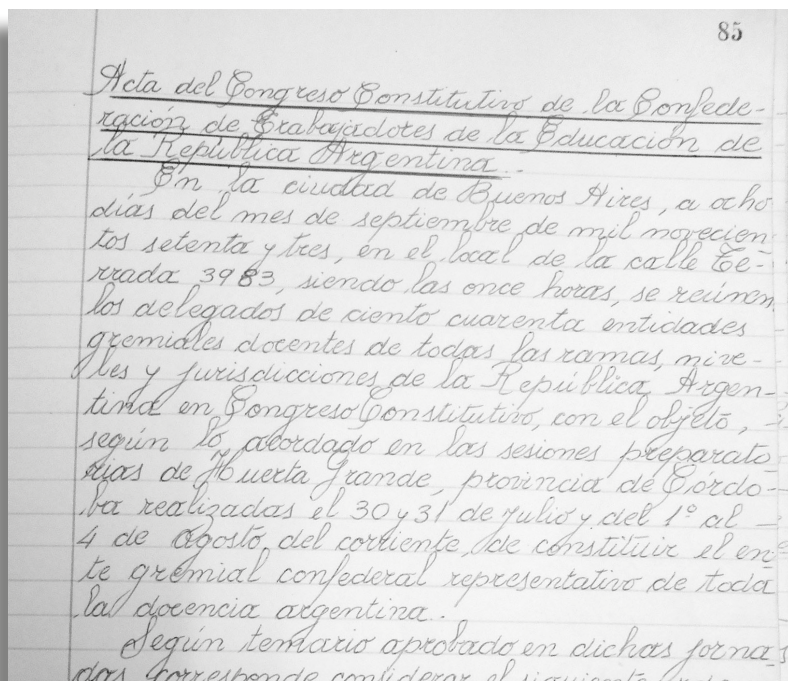 85
Acta del Congreso Constitutivo de la Confede-
ración de Trabajadores de la Educación de
la República Argentina.-
En la ciudad de Buenos Aires, a ocho
días del mes de septiembre de mil novecien
tos setenta y tres, en el local de la calle Te-
rrada 3983, siendo las once horas, se reúnen
los delegados de ciento cuarenta entidades
gremiales docentes de todas las ramas, nive-
les y jurisdicciones de la República Argen-
tina en Congreso Constitutivo, con el objeto, -
según lo acordado en las sesiones preparato
rias de Huerta Grande, provincia de Córdo-
ba realizadas el 30 y 31 de julio y del 1º al -
4 de agosto del corriente, de constituir el en-
te gremial confederal representativo de toda
la docencia argentina.-
Según temario aprobado en dichas jorna
das corresponde considerar el siguiente